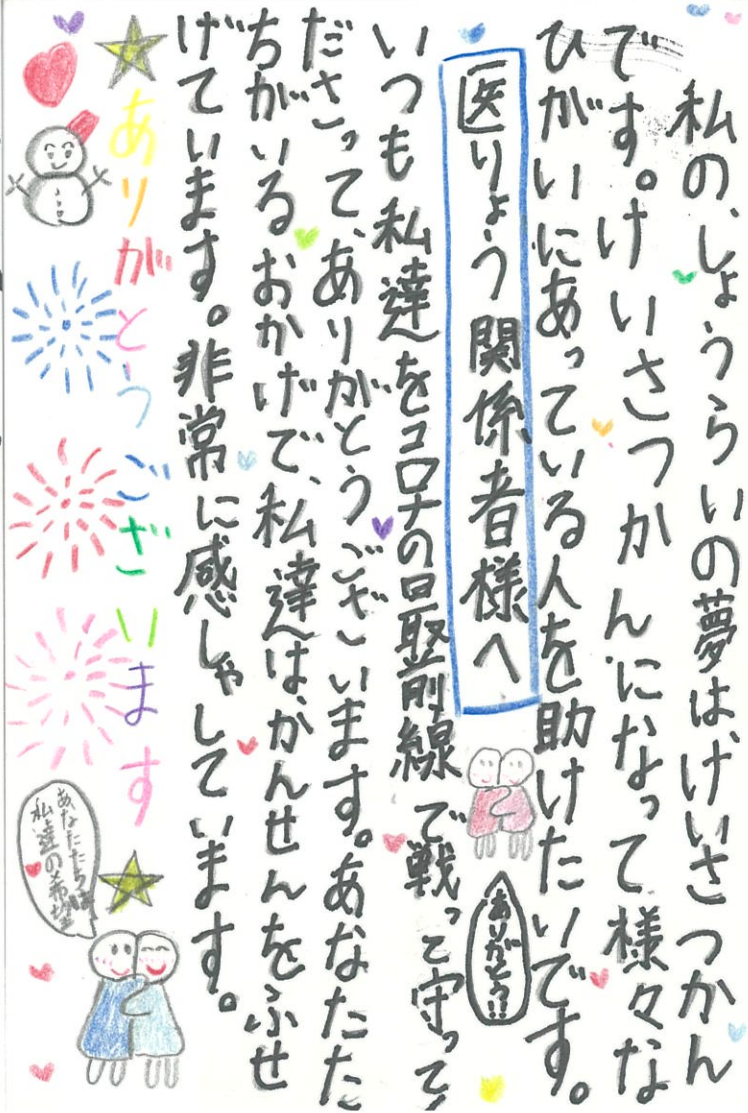 私の、しょうらいの夢は、けいさつかん
です。けいさつかんになって様々な
ひがいにあっている人を助けたいです。
医りょう関係者様へ
ありがとう!!
いつも私達をコロナの最前線で戦って守って
ださって、ありがとうございます。あなたた
ちがいるおかげで、私達は、かんせんをふせ
げています。非常に感しゃしています。
ありがとうございます
あなたたちは
私達の希望